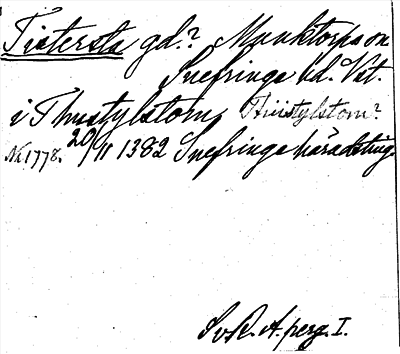 Tistersta gd.? Munktorps sn
Snefringe hd. Vst.
i Thustylstom, Thiistylstom?
No 1778. 20/11 1382 Snefringe häradsting
SvR. A. perg. I.